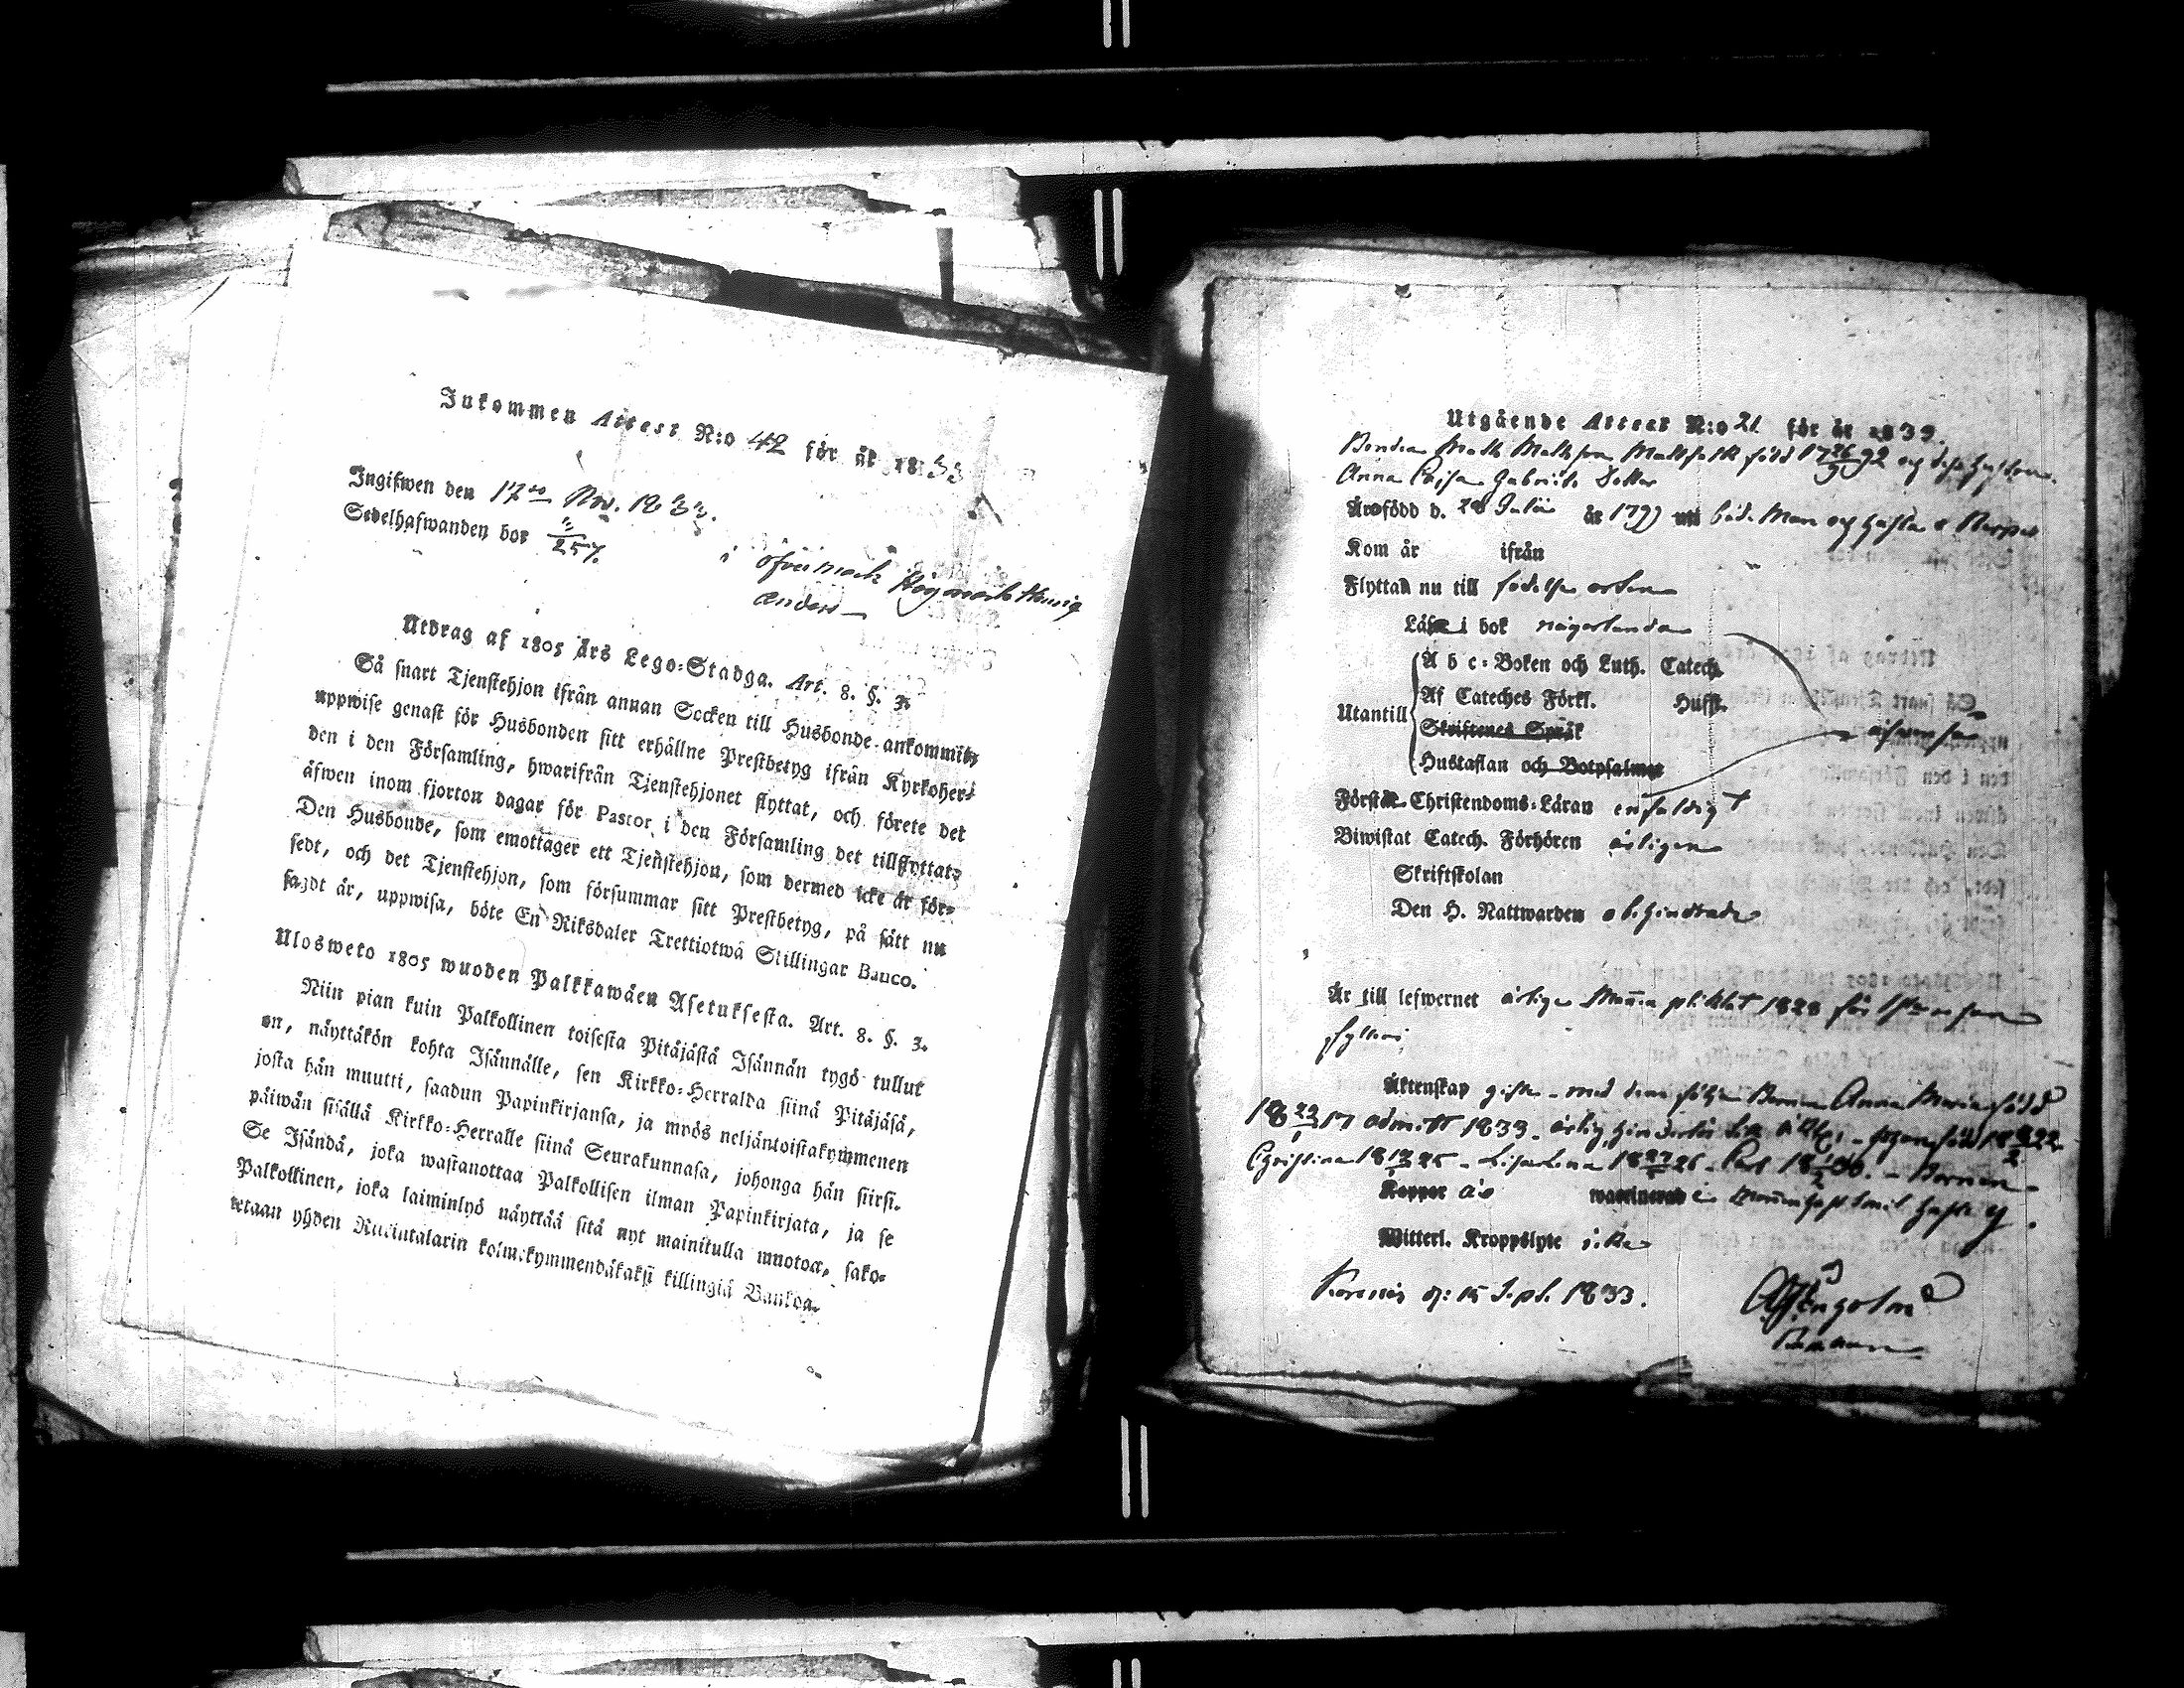 Inkommen Attest N:o 42 för år 1833
Ingifwen den 17de Nov. 1833.
Sedelhafwanden bor i öfvermark
257.
Anders
Utdrag af 1805 Års Lego-Stadga. Art. 8. §. 3.
Så snart Tjenstehjon ifrån annan Socken till Husbonde ankommit,
uppwise genast för Husbonden sitt erhållne Prestbetyg ifrån Kyrkoher-
den i den Församling, hwarifrån Tjenstehjonet flyttat, och förete det
äfwen inom fjorton dagar för Pastor i den Församling det tillflyttat.
Den Husbonde, som emottager ett Tjenstehjon, som dermed icke är för-
sedt, och det Tjenstehjon, som försummar sitt Prestbetyg, på sätt nu
sagdt är, uppwisa, böte En Riksdaler Trettiotwå Skillingar Banco.
Ulosweto 1805 wuoden Palkkawäen Asetuksesta. Art. 8. §. 3.
Niin pian kuin Palkollinen toisesta Pitäjästä Isännän tygö tullut
on, näyttäkön kohta Isännälle, sen Kirkko-Herralda siinä Pitäjäsä,
josta hän muutti, saadun Papinkirjansa, ja myös neljäntoistakymmenen
päiwän sisällä Kirkko-Herralle siinä Seurakunnasa, johonga hän siirsi.
Se Isändä, joka wastanottaa Palkollisen ilman Papinkirjata, ja se
Palkollinen, joka laiminlyö näyttää sitä nyt mainitulla muotoa, sako-
tetaan yhden Riikintalarin kolmekymmendäkaksi killingiä Bankoa.
Utgående Attest N:o 21 för år 1833.
Bonden Matts Mattsson född 17 26/9 92 och dess hustru
Anna Cajsa Gabriels Dotter
Är född d. 28 Julii år 1797 båd. Man och hustru
Kom år ifrån
Flyttad nu till födelse orten
Läse i bok någorlunda
Utantill
A b c-Boken och Luth. Catech.
Af Cateches Förkl. Husst.
Skriftenes Språk
Hustaflan och Botpsalmer
Förstår Christendoms-Läran enfaldigt
Biwistat Catech. Förhören årligen
Skriftskolan
Den H. Nattwarden obehindrade
Är till lefwernet ärliga Mannen pliktat 1828 för
fylleri
Äktenskap gifte - med dem följer Barnen Anna Maria född
1817 admitt 1833. ärlig, hinderlös till äktsk.
Christina 18 25 - Lisa Lena 18 26 - Carl 18 30. - Barnen
Koppor vaccinerad
Witterl. Kroppslyte icke
Korsnäs d: 15 Sept. 1833.